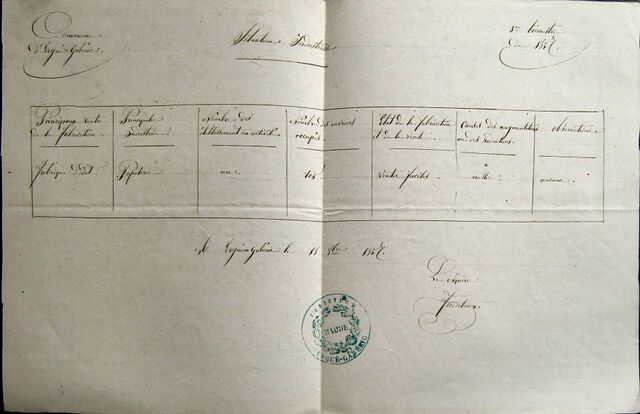 Commune
d'Ergué-Gabéric
Situation Industrielle
3e trimestre
de 1857.
Principaux
de la fabrication
Principale
industrie
Nombre des
établissements en activité
Nombre des ouvriers
occupés
Etat de la fabrication
et de la vente
Causes des augmentations
ou des diminutions
observations
fabrique d'Odet
Papeterie
un
105
vente facile
nulle
aucune
Ergué-Gabéric le 15 8bre 1857.
Le Maire
FINISTÈRE
MAIRIE
ERGUÉ-GABÉRIC